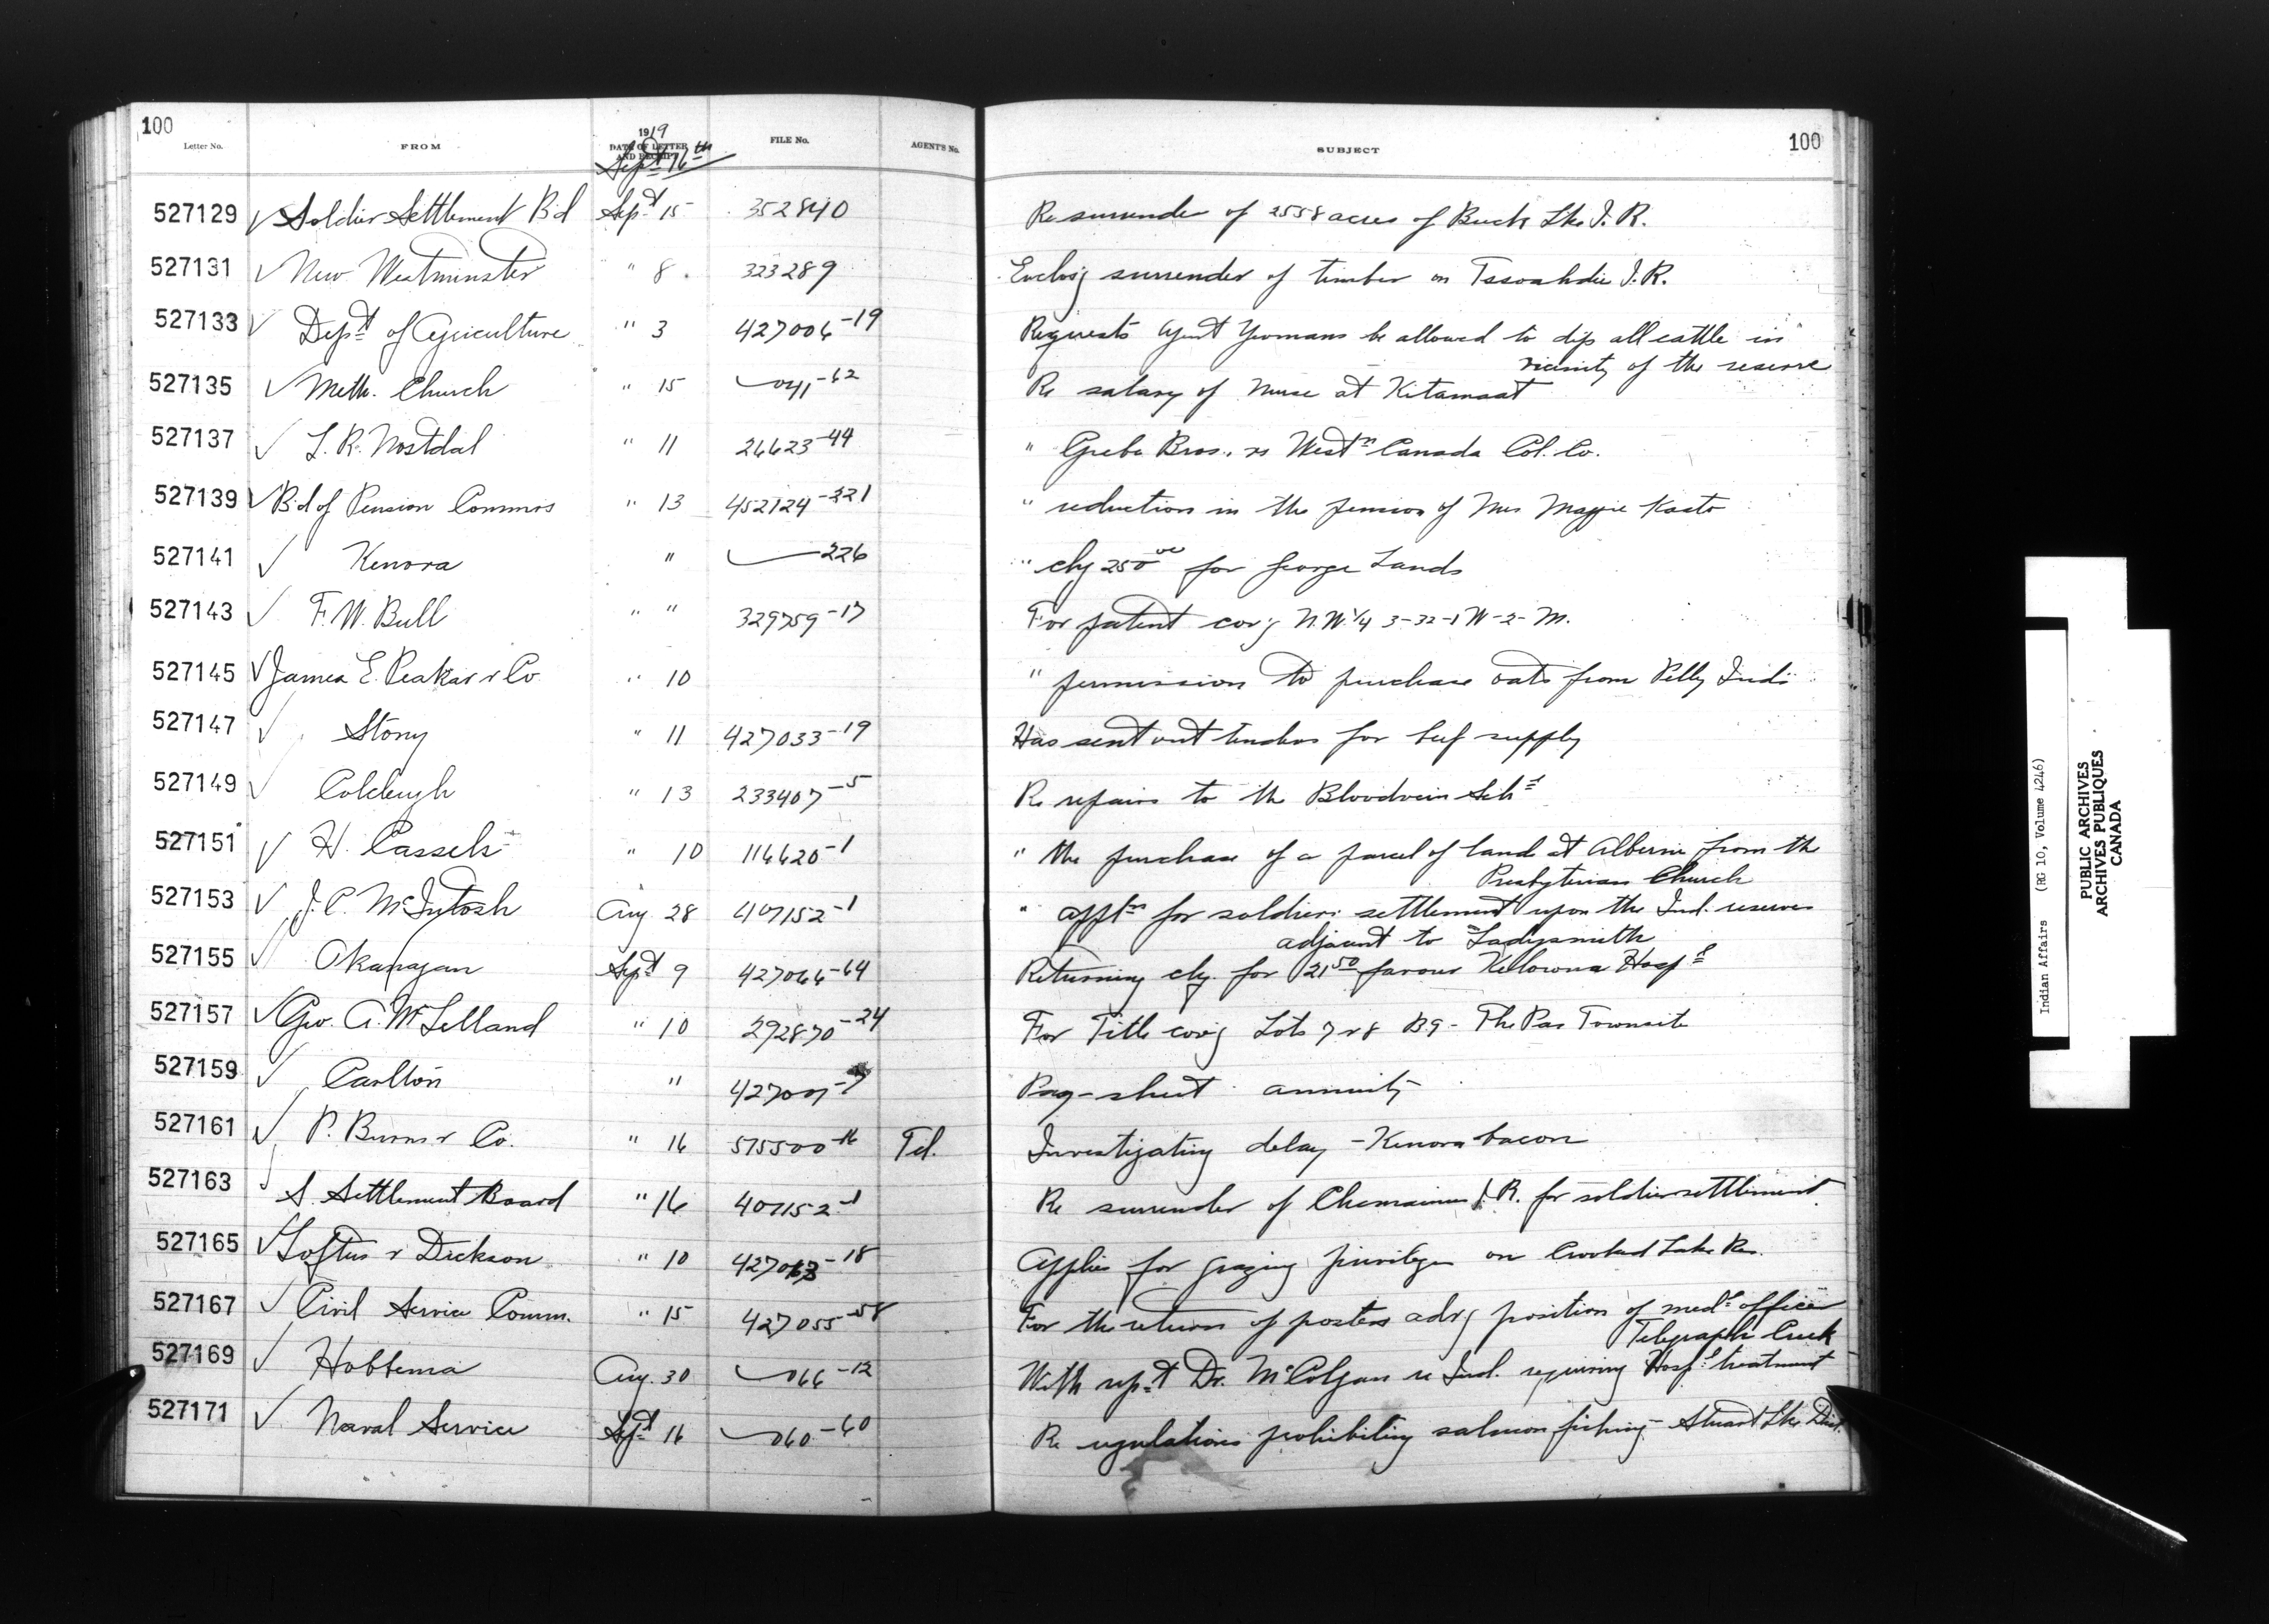 100
Letter No. FROM 1919 DATE OF LETTER AND RECEIPT FILE No. AGENT'S No. SUBJECT 100
Sept 16th
527129 √ Soldier Settlement Bd Sept 15 352840 Re surrender of 2558 acres of Buck Lke I.R.
527131 √ New Westminster " 8 323289 Enclos'g surrender of timber on Tssoahdie I.R.
527133 √ Dept of Agriculture " 3 427006-19 Requests Agent Yeomans be allowed to dip all cattle in
vicinity of the reserve
527135 √ Meth. Church " 15 041-62 Re salary of Nurse at Kitamaat
527137 √ L.R. Nostdal " 11 26623-44 " Grebe Bros. vs Westn Canada Col. Co.
527139 √ Bd of Pension Commrs " 13 452124-221 " reduction in the pension of Mrs Maggie Kasto
527141 √ Kenora " 226 " chq 250.00 for George Lands
527143 √ F.W. Bull " " 329759-17 For patent cov'g N.W. 1/4 3-32-1 W-2-M.
527145 √ James E. Peakar & Co " 10 " permission to purchase oats from Pelly Inds
527147 √ Stony " 11 427033-19 Has sent out tenders for beef supply
527149 √ Coldeugh " 13 233407-5 Re repairs to the Bloodvein Schl
527151 √ H. Cassels " 10 116620-1 " the purchase of a parcel of land at Alberni from the
Presbyterian Church
527153 √ J.C. McIntosh Aug. 28 407152-1 " appln for soldiers settlement upon the Ind. reserves
adjacent to Ladysmith
527155 √ Okanagan Sept 9 427066-64 Returning chq. for 21.50 favour Kelowna Hospl
527157 √ Geo. A. McLelland " 10 292870-24 For Title cov'g Lots 7 & 8 B9 - The Pas Townsite
527159 √ Carlton " 427007-7 Pay-sheet annuity
527161 √ P. Burns & Co. " 16 575500-16 Tel. Investigating delay - Kenora bacon
527163 √ S. Settlement Board " 16 407152-1 Re surrender of Chemainus I.R. for soldier settlement
527165 √ Loftus & Dickson " 10 427063-18 Applies for grazing privileges on Crooked Lake Res.
527167 √ Civil Service Comm. " 15 427055-58 For the return of posters advg position of medl officer
Telegraph Creek
527169 √ Hobbema Aug. 30 066-12 With rept Dr. McColgan re Ind. requiring Hospl treatment
527171 √ Naval Service Sept 16 060-60 Re regulations prohibiting salmon fishing - Stuart Lke Dist.
Indian Affairs (RG 10, Volume 4246)
PUBLIC ARCHIVES
ARCHIVES PUBLIQUES
CANADA